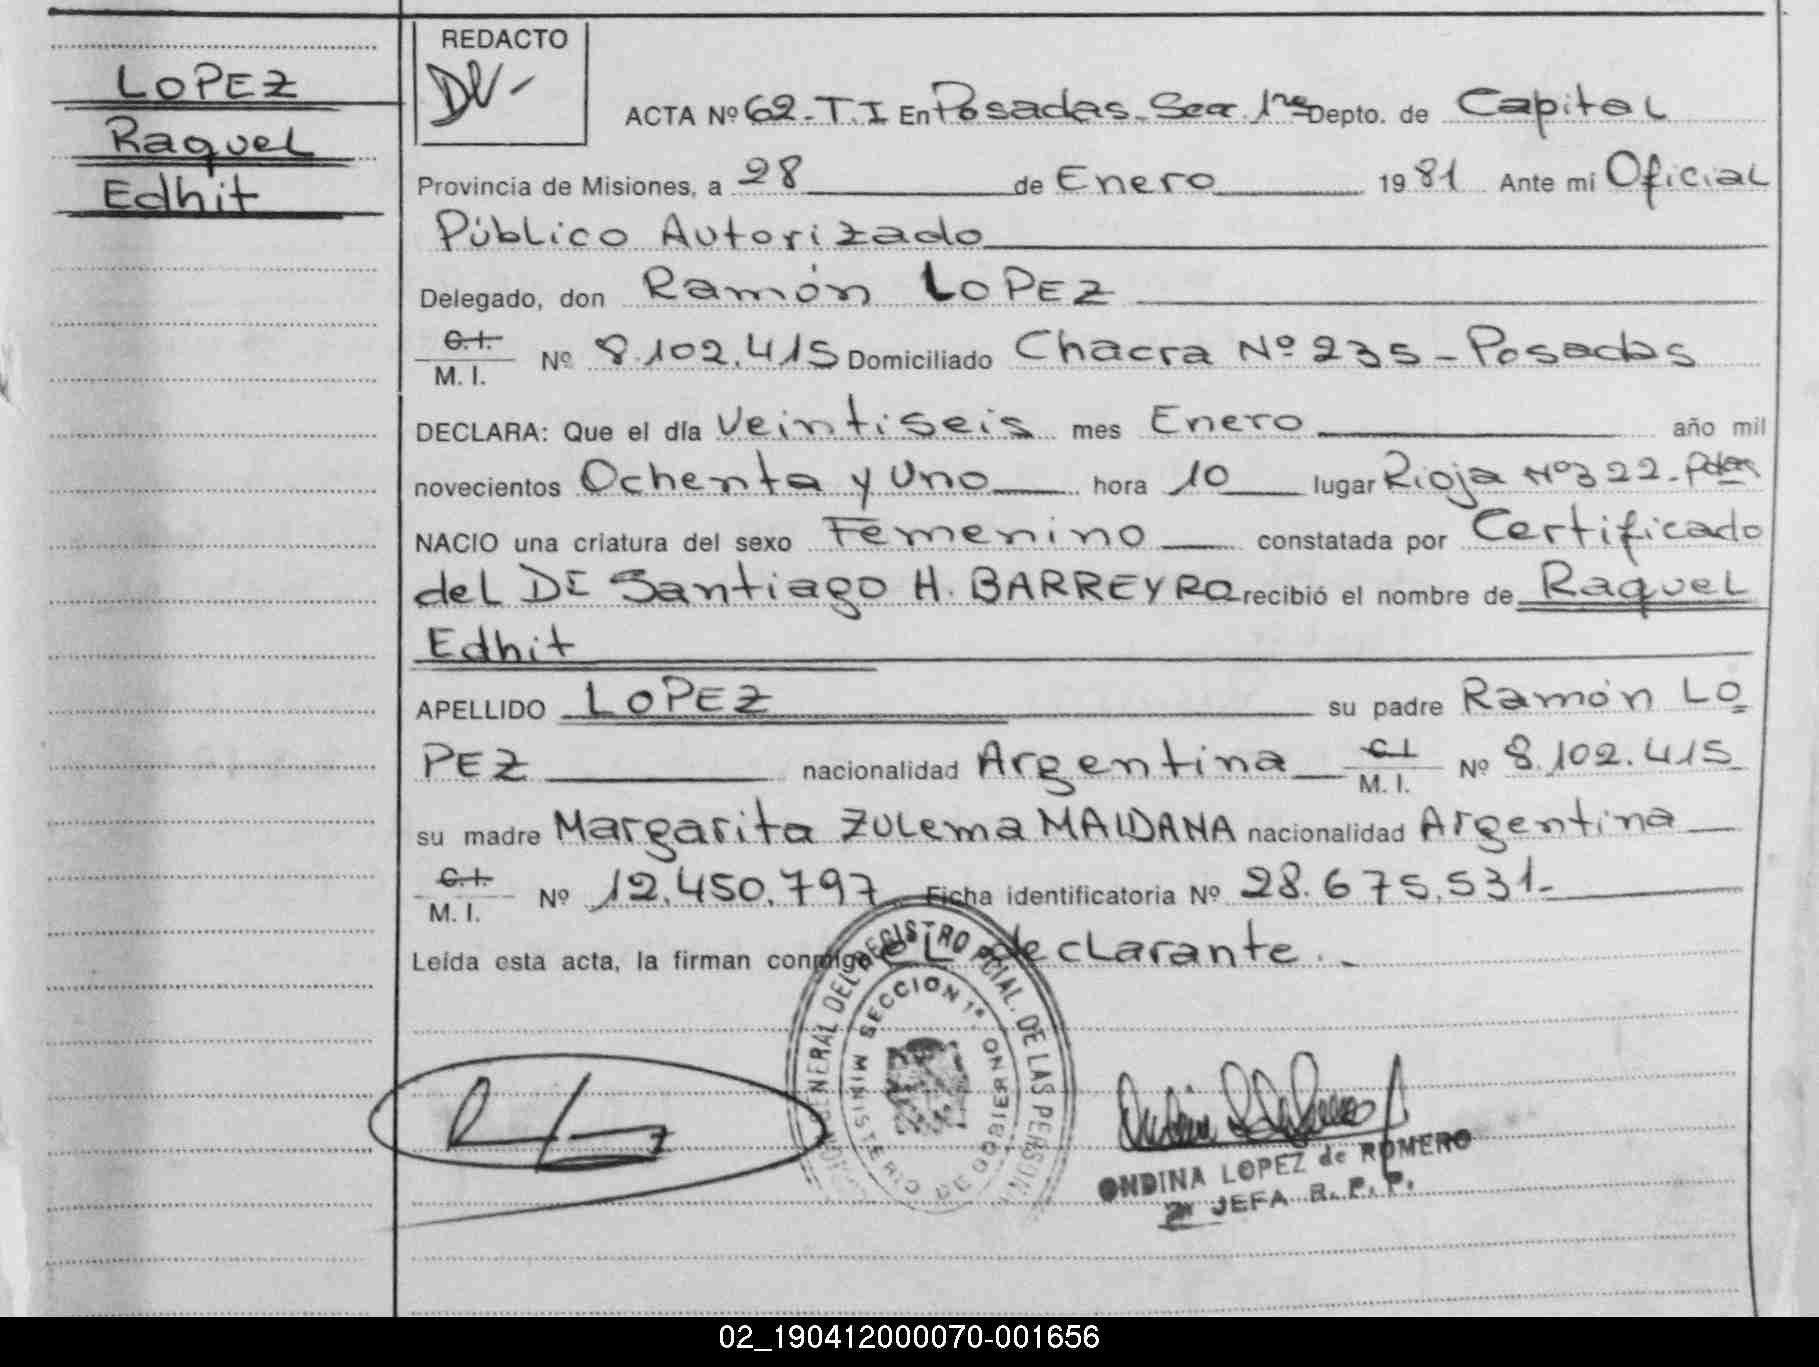 LOPEZ
Raquel
Edhit
REDACTO
ACTA Nº 62-T.I En Posadas-Secc. 1ra Depto. de Capital
Provincia de Misiones, a 28 de Enero 1981 Ante mi Oficial
Público Autorizado
Delegado, don Ramón LOPEZ
C.I.
M. I. Nº 8.102.415 Domiciliado Chacra Nº 235-Posadas
DECLARA: Que el día Veintiseis mes Enero año mil
novecientos Ochenta y Uno hora 10 lugar Rioja Nº322-Pdas
NACIO una criatura del sexo Femenino constatada por Certificado
del Dr Santiago H. BARREYRO recibió el nombre de Raquel
Edhit
APELLIDO LOPEZ su padre Ramón LO
PEZ nacionalidad Argentina C.I. M. I. Nº 8.102.415
su madre Margarita ZULema MALDANA nacionalidad Argentina
C.I.
M. I. Nº 12.450.797 Ficha identificatoria Nº 28.675.531-
Leída esta acta, la firman conmigo el declarante.-
GENERAL DEL REGISTRO PCIAL. DE LAS PERSON
SECCION 1ª
MINISTERIO DE GOBIERNO
ONDINA LOPEZ de ROMERO
JEFA R. P. P.
02_190412000070-001656